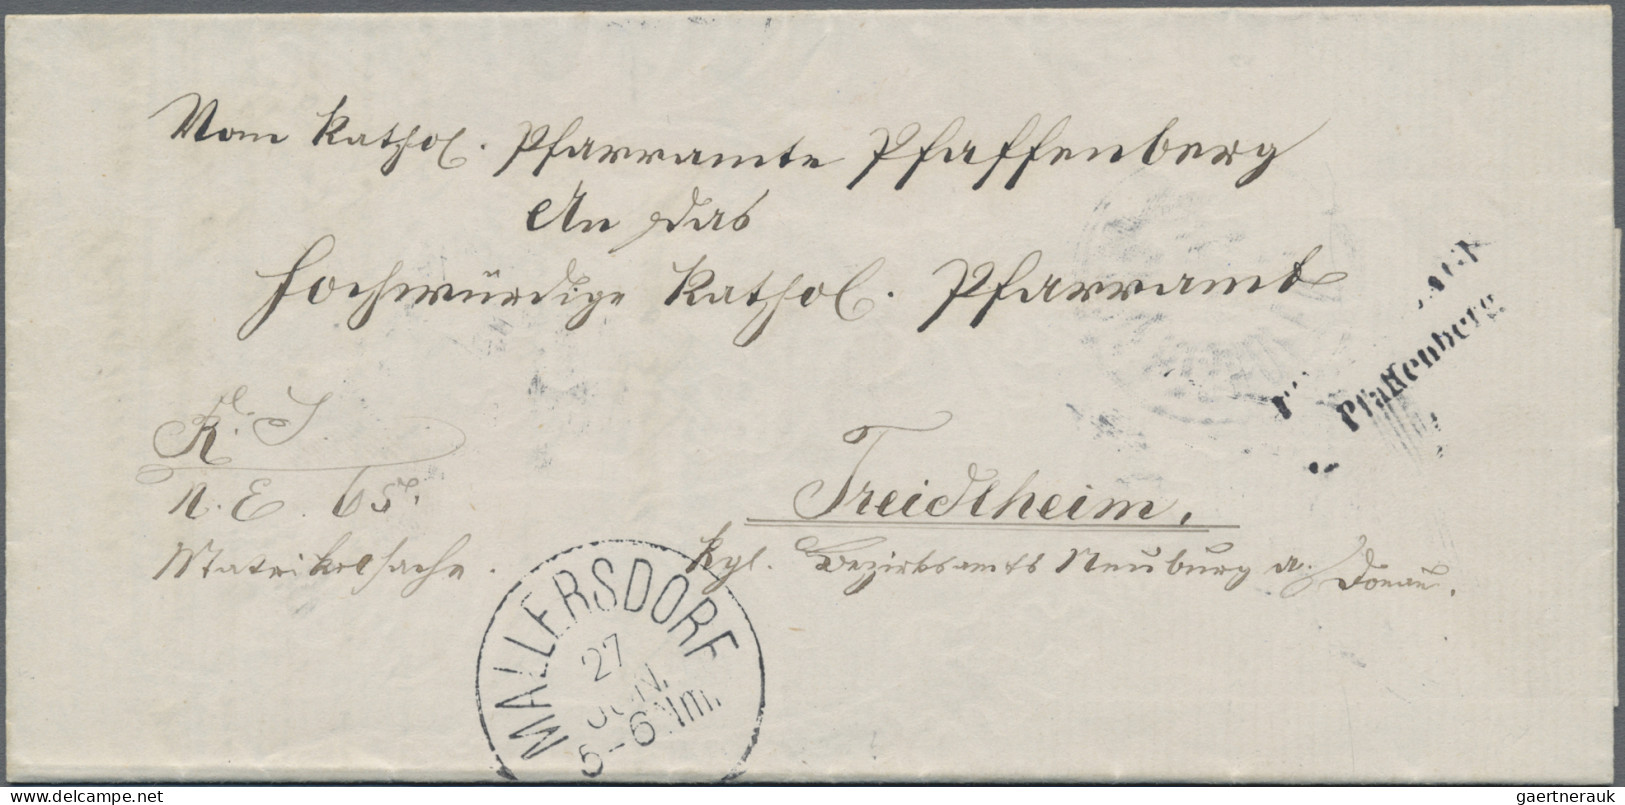 Vom kathol. Pfarramte Pfaffenberg
An das
hochwürdige kathol. Pfarramt
Pfaffenberg
R. S.
N. E. 65.
Treidlheim.
Matrikelsache.
kgl. Bezirksamts Neuburg a. Donau.
MALLERSDORF
27
JUN.
5-6 Nm.
www.delcampe.net
gaertnerauk